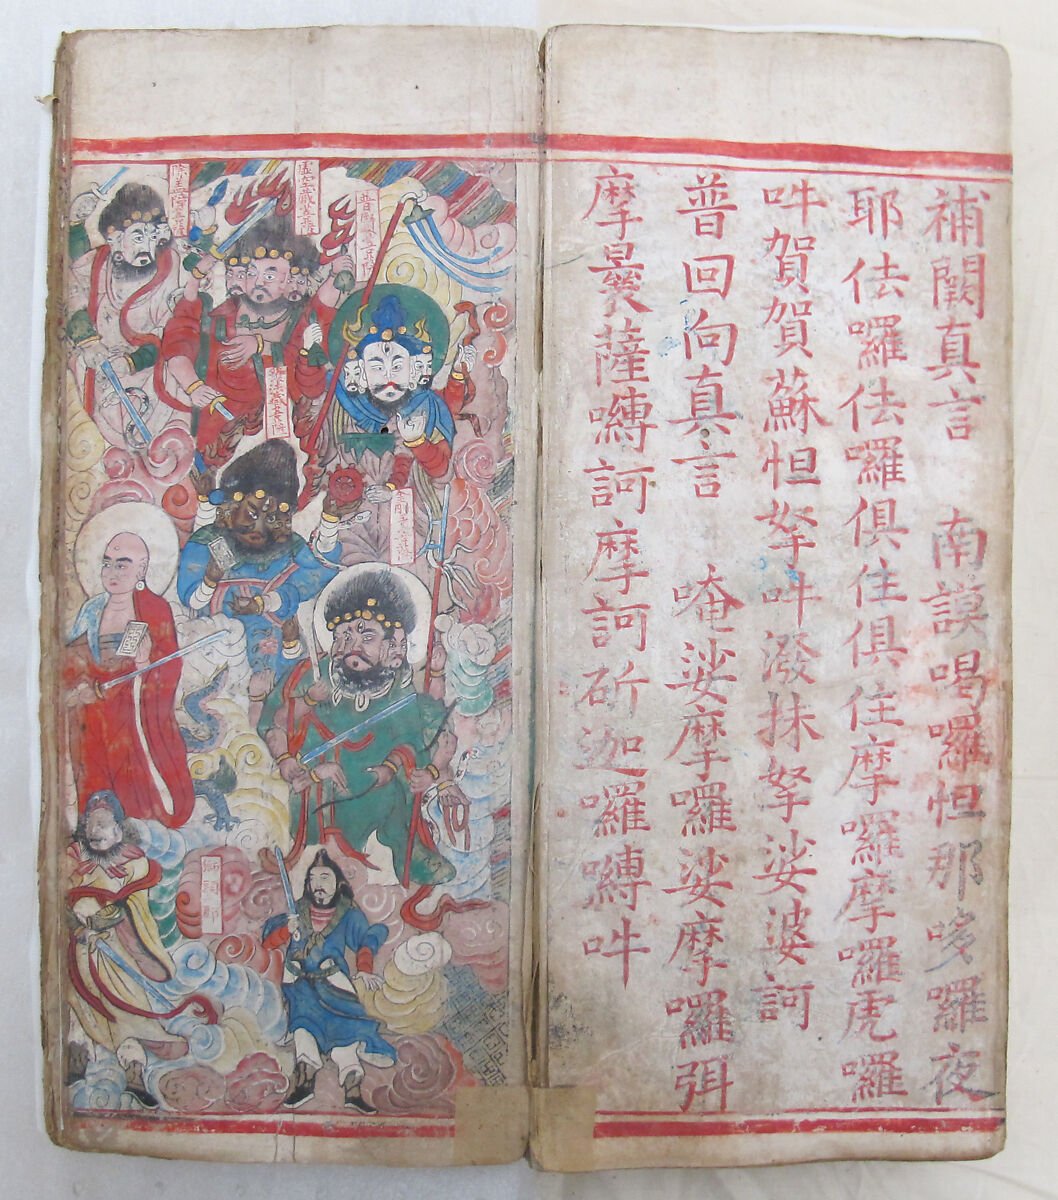 補闕真言　南謨喝囉怛那哆囉夜
耶佉囉佉囉俱住俱住摩囉摩囉虎囉
吽賀賀蘇怛拏吽潑抹拏娑婆訶
普回向真言　唵娑摩囉娑摩囉弭
摩曩薩嚩訶摩訶斫迦囉嚩吽
虛空藏菩薩
金剛手菩薩